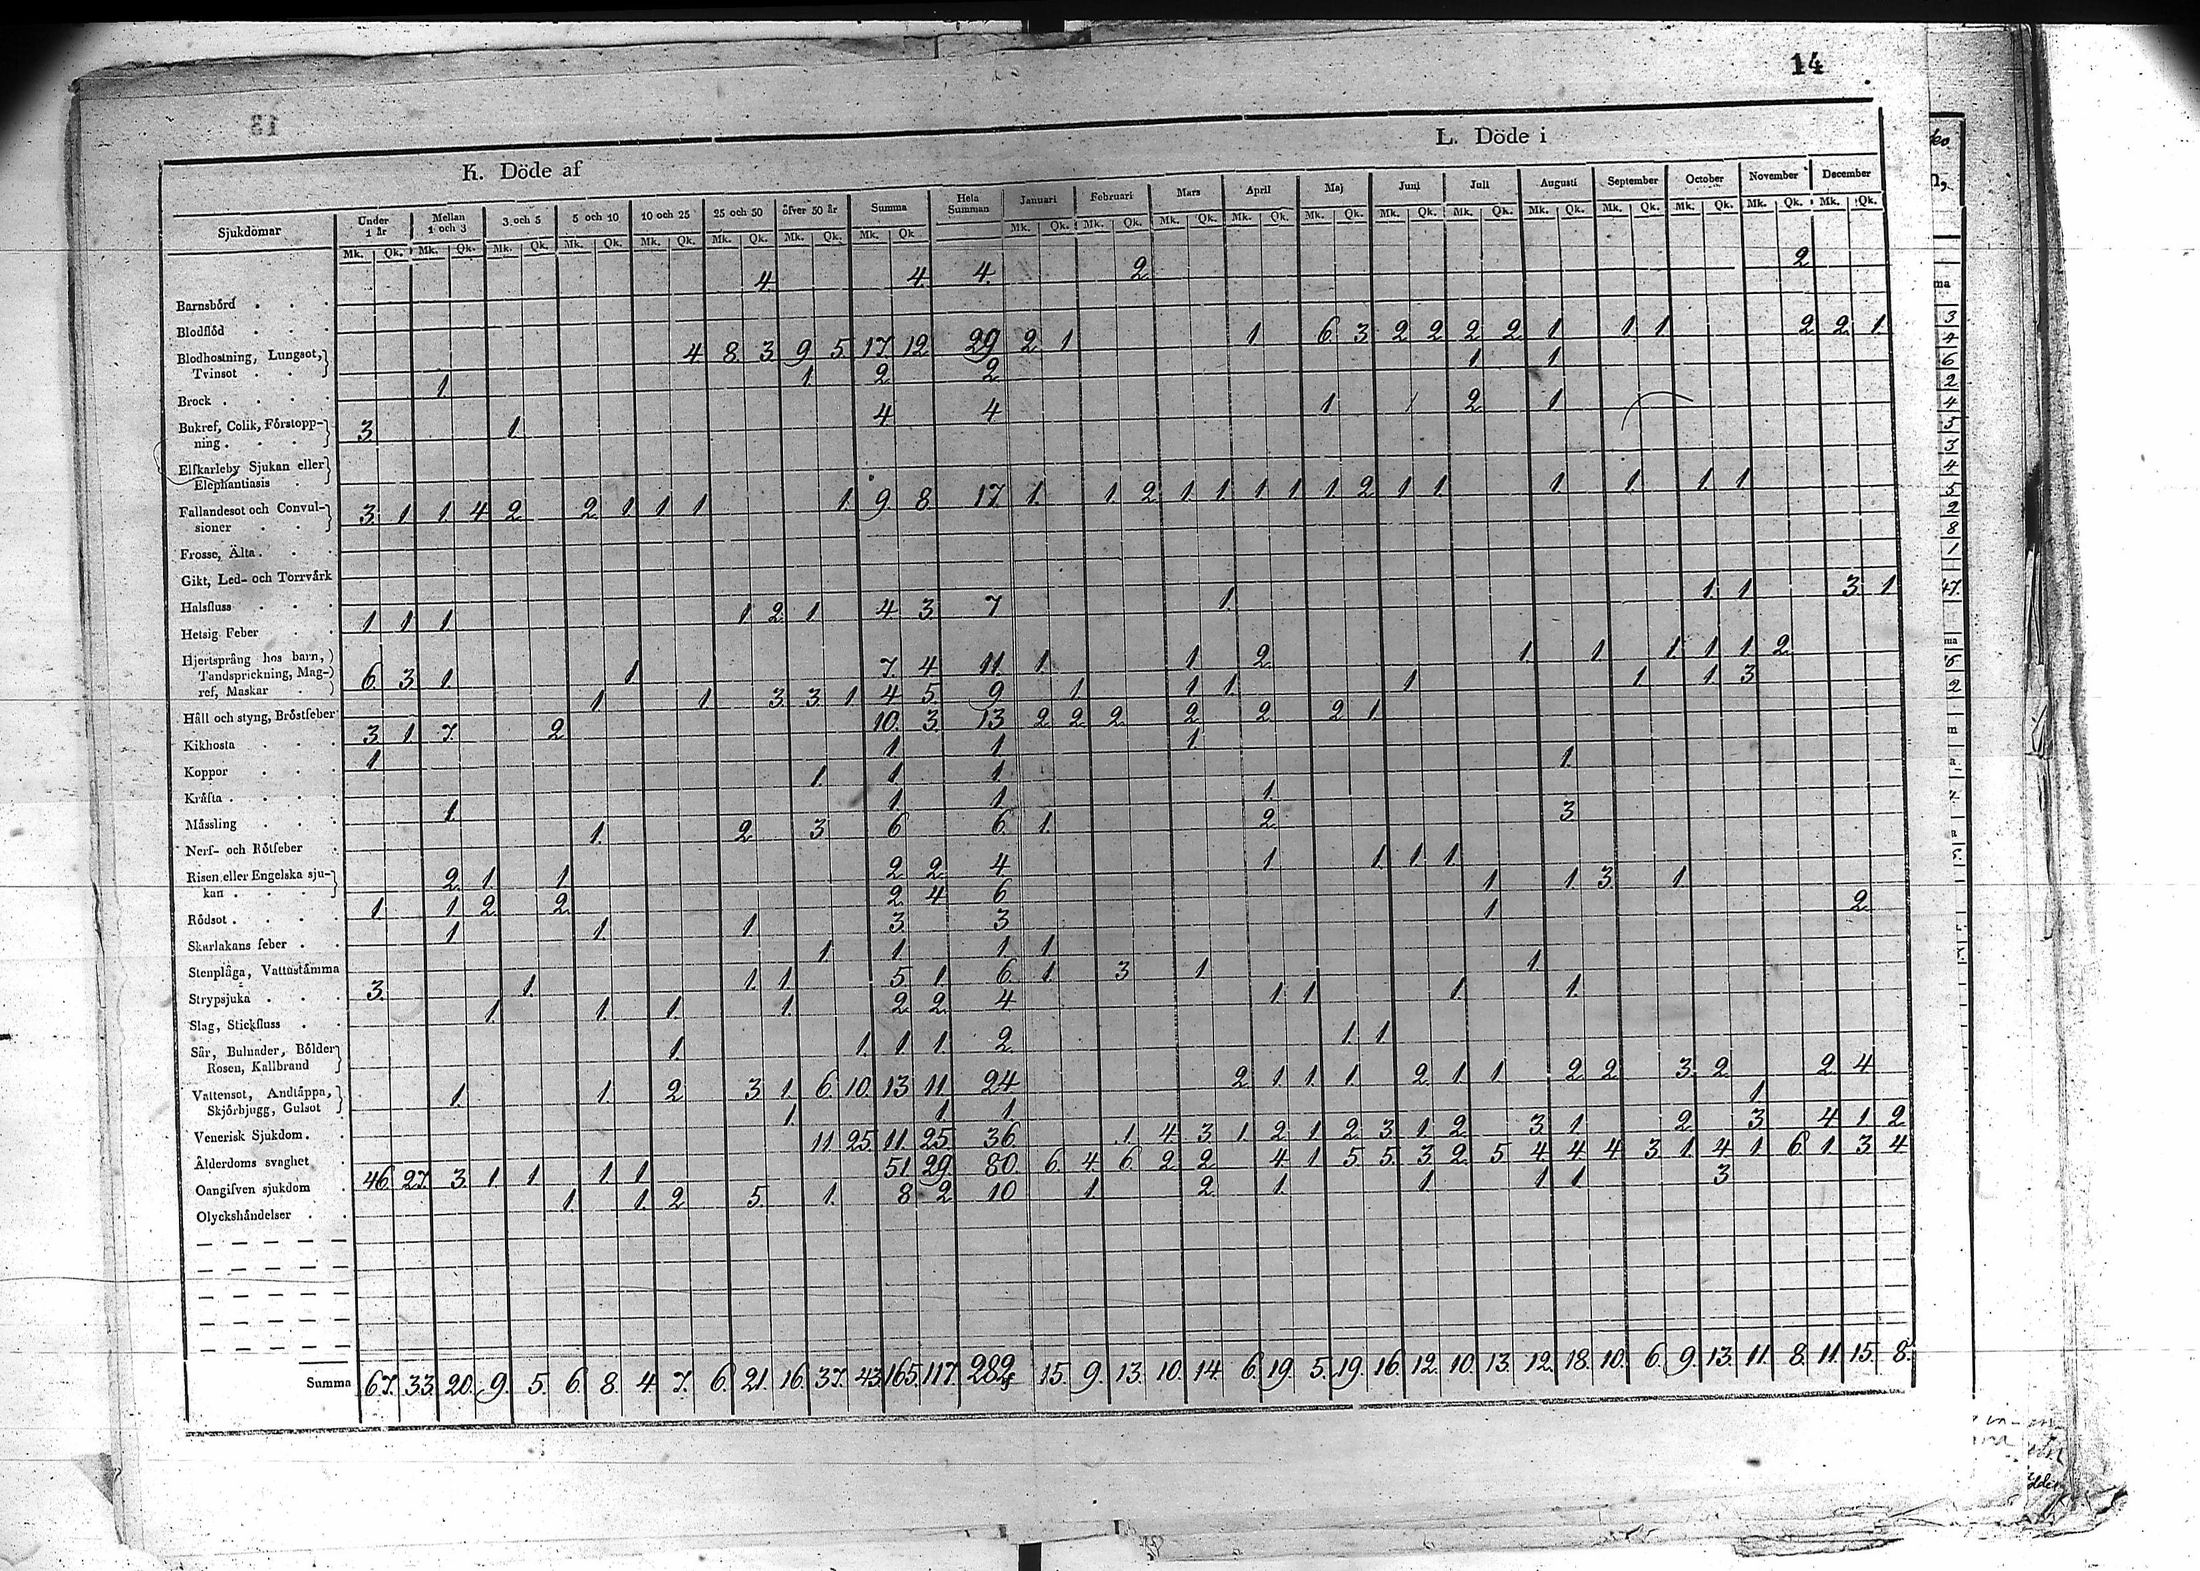 14
13
K. Döde af
L. Döde i
Sjukdomar Under 1 år Mellan 1 och 3 3 och 5 5 och 10 10 och 25 25 och 50 öfver 50 år Summa Hela Summan Januari Februari Mars April Maj Juni Juli Augusti September October November December
Mk. Qk. Mk. Qk. Mk. Qk. Mk. Qk. Mk. Qk. Mk. Qk. Mk. Qk. Mk. Qk. Mk. Qk. Mk. Qk. Mk. Qk. Mk. Qk. Mk. Qk. Mk. Qk. Mk. Qk. Mk. Qk. Mk. Qk. Mk. Qk. Mk. Qk. Mk. Qk.
Barnsbörd . . . 4. 4. 4. 2. 2.
Blodflöd . . .
Blodhostning, Lungsot, Tvinsot . . . 4. 8. 3. 9. 5. 17. 12. 29 2. 1. 1. 6. 3. 2. 2. 2. 2. 1. 1. 1. 2. 2. 1.
Brock . . . . 1. 1. 2. 2. 1. 1.
Bukref, Colik, Förstoppning . . . 3. 1. 4 4 1. 1 2. 1.
Elfkarleby Sjukan eller Elephantiasis .
Fallandesot och Convulsioner . . 3. 1. 1. 4. 2. 2. 1. 1. 1. 1. 9. 8. 17. 1. 1. 2. 1. 1. 1. 1. 1. 2. 1. 1. 1. 1. 1. 1.
Frosse, Älta . . .
Gikt, Led- och Torrvärk
Halsfluss . . .
Hetsig Feber . . 1. 1. 1. 1. 2. 1. 4. 3. 7 1. 1. 1. 3. 1.
Hjertsprång hos barn, Tandsprickning, Magref, Maskar . 6. 3. 1. 1. 7. 4. 11. 1. 1. 2. 1. 1. 1. 1. 1. 2.
Håll och styng, Bröstfeber 1. 1. 3. 3. 1. 4. 5. 9. 1. 1. 1. 1. 1. 1. 3.
Kikhosta . . . 3. 1. 7. 2. 10. 3. 13 2. 2. 2. 2. 2. 2. 1.
Koppor . . . 1. 1. 1. 1.
Kräfta . . . . 1. 1. 1. 1.
Mässling . . . 1. 1. 1. 1.
Nerf- och Rötfeber . 1. 2. 3 6 6. 1. 2. 3
Risen eller Engelska sjukan . . . 2. 1. 1. 2. 2. 4 1. 1. 1. 1.
Rödsot . . . . 1. 1. 2. 2. 2. 4 6 1. 1. 3. 1.
Skarlakans feber . . 1. 1. 1. 3. 3. 1. 2.
Stenplåga, Vattustämma 1. 1. 1. 1.
Strypsjuka . . . 3. 1. 1. 1. 5. 1. 6. 1. 3. 1. 1.
Slag, Stickfluss . . 1. 1. 1. 1. 2. 2. 4. 1. 1. 1. 1.
Sår, Bulnader, Bölder Rosen, Kallbrand 1. 1. 1. 1. 2. 1. 1.
Vattensot, Andtäppa, Skjörbjugg, Gulsot 1. 1. 2 3. 1. 6. 10. 13 11. 24 2. 1. 1. 1. 2. 1. 1. 2. 2. 3. 2. 2. 4
Venerisk Sjukdom . . 1. 1. 1. 1.
Ålderdoms svaghet . 11. 25. 11. 25. 36 1. 4. 3. 1. 2. 1. 2. 3. 1. 2. 3. 1. 2. 3. 4. 1. 2
Oangifven sjukdom . 46. 27. 3. 1. 1. 1. 1. 51. 29. 80. 6. 4. 6. 2. 2. 4. 1. 5. 5. 3. 2. 5. 4. 4. 4. 3. 1. 4. 1. 6. 1. 3. 4
Olyckshändelser . . 1. 1. 2 5. 1. 8. 2. 10 1. 2. 1. 1. 1. 1. 3.
Summa 67. 33. 20. 9. 5. 6. 8. 4. 7. 6. 21. 16. 37. 43. 165. 117. 282. 15. 9. 13. 10. 14. 6. 19. 5. 19. 16. 12. 10. 13. 12. 18. 10. 6. 9. 13. 11. 8. 11. 15. 8.